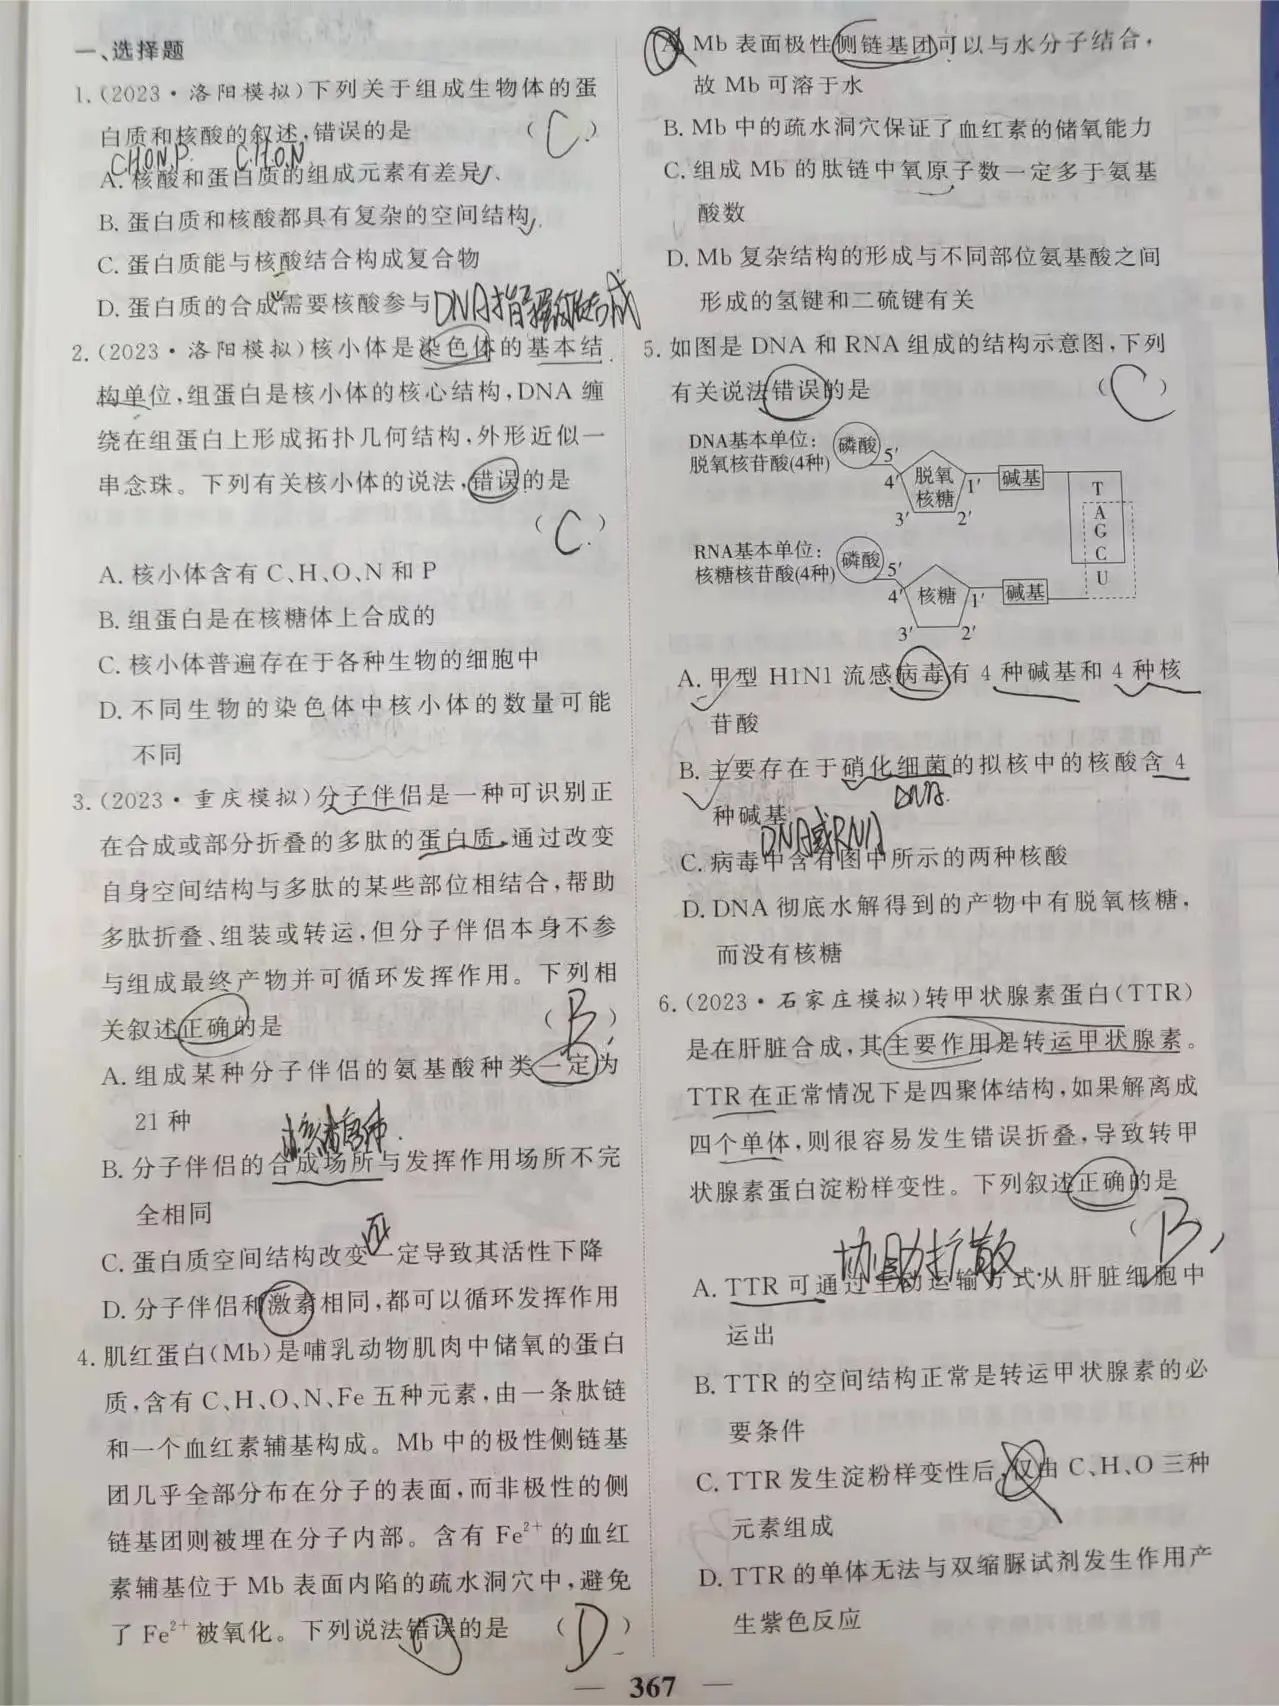 一、选择题
1.(2023·洛阳模拟)下列关于组成生物体的蛋
白质和核酸的叙述,错误的是 (C)
C.H.O.N.P. C.H.O.N
A.核酸和蛋白质的组成元素有差异
B.蛋白质和核酸都具有复杂的空间结构
C.蛋白质能与核酸结合构成复合物
D.蛋白质的合成需要核酸参与 DNA指导蛋白质合成
2.(2023·洛阳模拟)核小体是染色体的基本结
构单位,组蛋白是核小体的核心结构,DNA 缠
绕在组蛋白上形成拓扑几何结构,外形近似一
串念珠。下列有关核小体的说法,错误的是
(C)
A.核小体含有 C、H、O、N 和 P
B.组蛋白是在核糖体上合成的
C.核小体普遍存在于各种生物的细胞中
D.不同生物的染色体中核小体的数量可能
不同
3.(2023·重庆模拟)分子伴侣是一种可识别正
在合成或部分折叠的多肽的蛋白质,通过改变
自身空间结构与多肽的某些部位相结合,帮助
多肽折叠、组装或转运,但分子伴侣本身不参
与组成最终产物并可循环发挥作用。下列相
关叙述正确的是 (B)
A.组成某种分子伴侣的氨基酸种类一定为
21 种
核糖体
B.分子伴侣的合成场所与发挥作用场所不完
全相同
C.蛋白质空间结构改变一定导致其活性下降
D.分子伴侣和激素相同,都可以循环发挥作用
4.肌红蛋白(Mb)是哺乳动物肌肉中储氧的蛋白
质,含有 C、H、O、N、Fe 五种元素,由一条肽链
和一个血红素辅基构成。Mb 中的极性侧链基
团几乎全部分布在分子的表面,而非极性的侧
链基团则被埋在分子内部。含有 Fe²⁺ 的血红
素辅基位于 Mb 表面内陷的疏水洞穴中,避免
了 Fe²⁺ 被氧化。下列说法错误的是 (D)
A.Mb 表面极性侧链基团可以与水分子结合,
故 Mb 可溶于水
B.Mb 中的疏水洞穴保证了血红素的储氧能力
C.组成 Mb 的肽链中氧原子数一定多于氨基
酸数
D.Mb 复杂结构的形成与不同部位氨基酸之间
形成的氢键和二硫键有关
5.如图是 DNA 和 RNA 组成的结构示意图,下列
有关说法错误的是 (C)
DNA基本单位:
脱氧核苷酸(4种)
磷酸 5′ 4′ 脱氧核糖 1′ 3′ 2′ 碱基
T
A
G
C
U
RNA基本单位:
核糖核苷酸(4种)
磷酸 5′ 4′ 核糖 1′ 3′ 2′ 碱基
A.甲型 H1N1 流感病毒有 4 种碱基和 4 种核
苷酸
B.主要存在于硝化细菌的拟核中的核酸含 4
DNA.
种碱基
DNA或RNA
C.病毒中含有图中所示的两种核酸
D.DNA 彻底水解得到的产物中有脱氧核糖,
而没有核糖
6.(2023·石家庄模拟)转甲状腺素蛋白(TTR)
是在肝脏合成,其主要作用是转运甲状腺素。
TTR 在正常情况下是四聚体结构,如果解离成
四个单体,则很容易发生错误折叠,导致转甲
状腺素蛋白淀粉样变性。下列叙述正确的是
(B)
协助扩散
A.TTR 可通过主动运输方式从肝脏细胞中
运出
B.TTR 的空间结构正常是转运甲状腺素的必
要条件
C.TTR 发生淀粉样变性后,仅由 C、H、O 三种
元素组成
D.TTR 的单体无法与双缩脲试剂发生作用产
生紫色反应
— 367 —